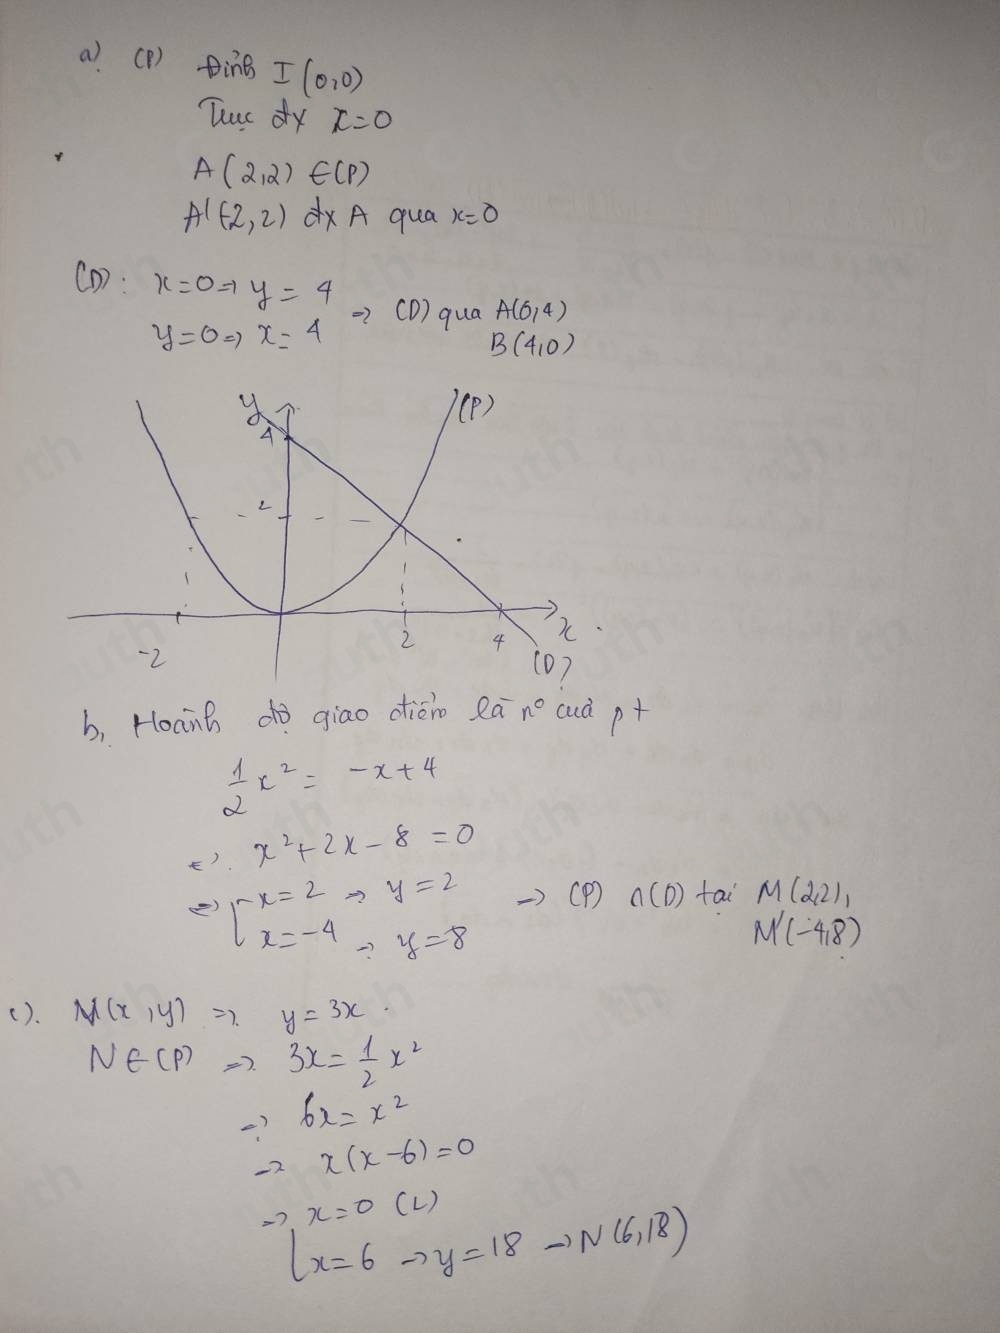 a) (P) Đỉnh I (0,0)
Trục đx x=0
A (2,2) ∈ (P)
A'(-2, 2) đx A qua x=0
(D): x=0 ⇒ y = 4
y=0 ⇒ x = 4 ⇒ (D) qua A(0,4)
B(4,0)
y (P)
4
2
-2 2 4 x
(D)
b, Hoành độ giao điểm là n° của pt
1/2 x² = -x+4
⇔ x²+2x-8 = 0
⇔ [ x=2 ⇒ y=2 ⇒ (P) ∩ (D) tại M(2,2),
x=-4 ⇒ y=8 M'(-4,8)
c). N(x, y) ⇒ y=3x
N∈(P) ⇒ 3x = 1/2 x²
⇒ 6x = x²
⇒ x(x-6)=0
⇒ [ x=0 (L)
x=6 → y=18 → N(6,18)